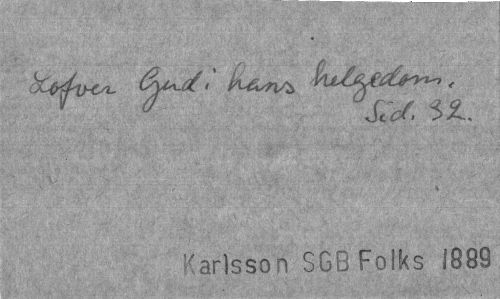 Lofver Gud i hans helgedom.
Sid. 32.
Karlsson SGB Folks 1889